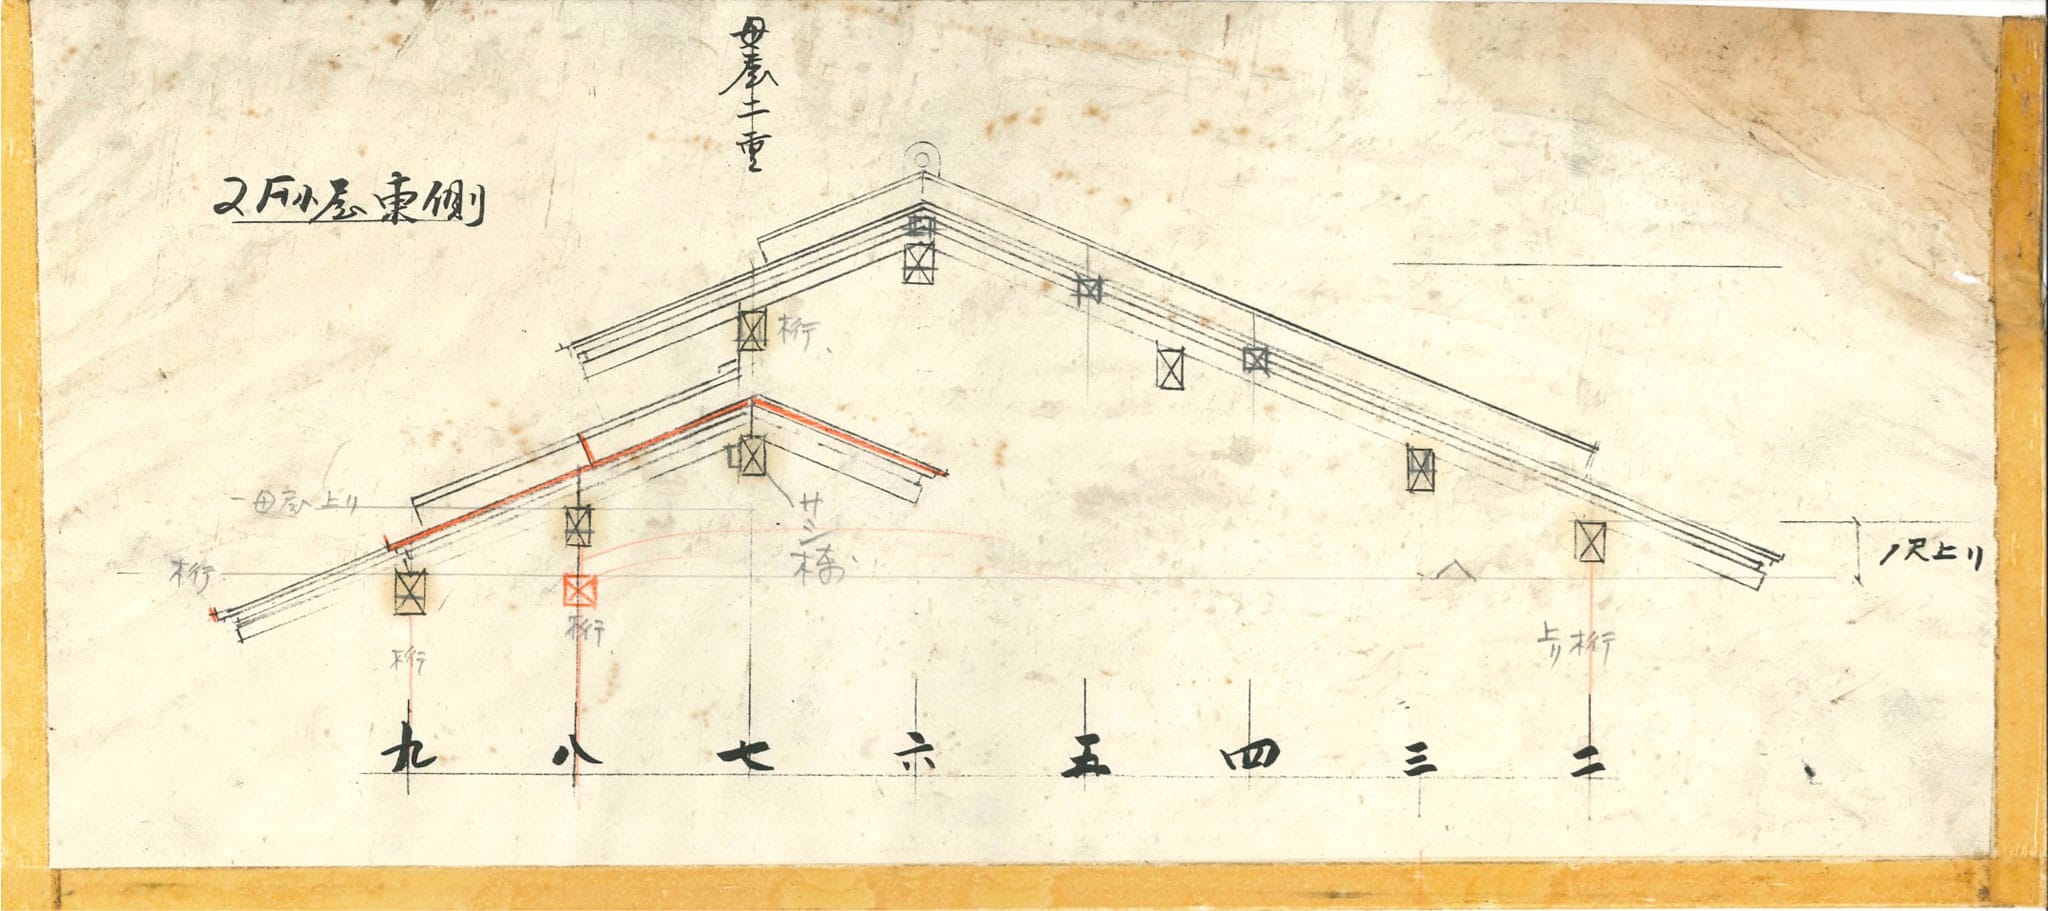 母屋二重
2戸小屋東側
桁
母屋上り
サシ棟
桁
1尺上り
桁
桁
上り桁
九 八 七 六 五 四 三 二